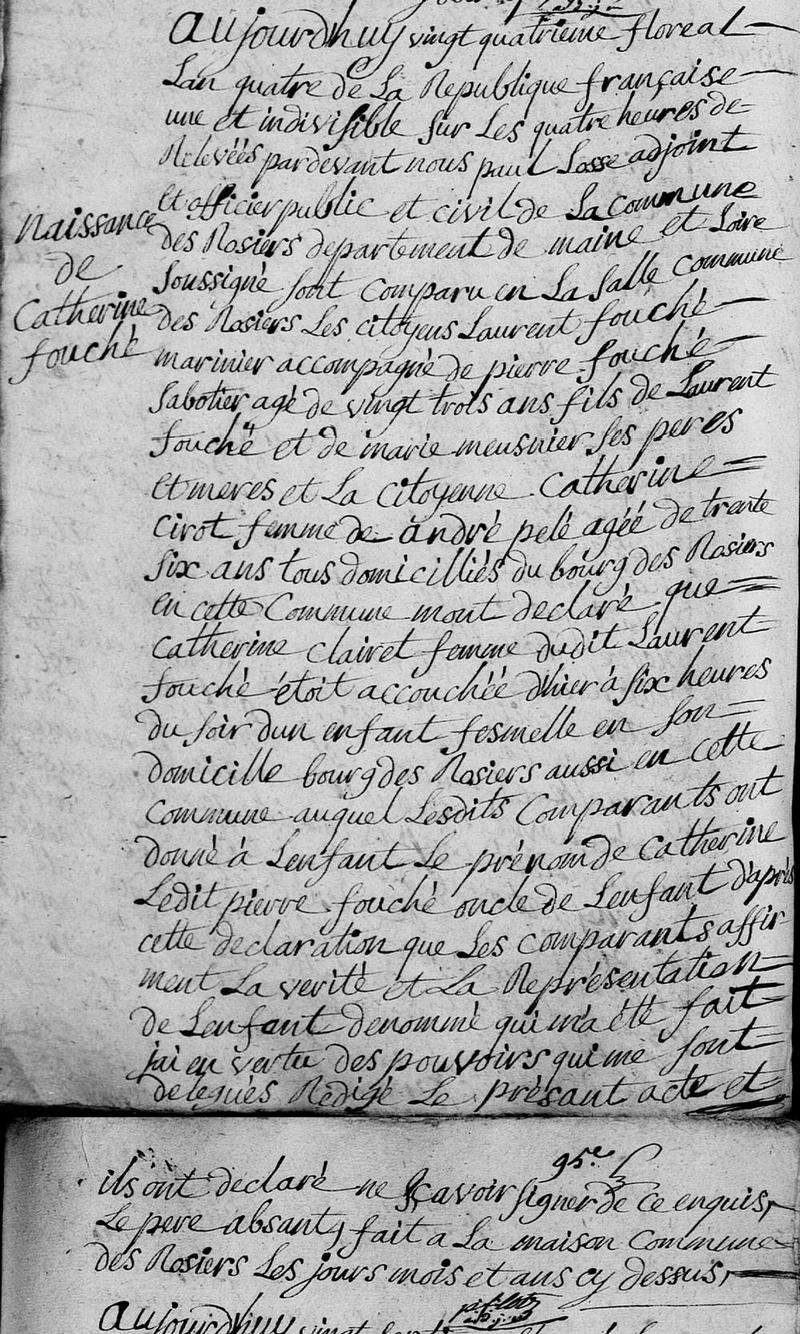 aujourdhuy vingt quatrieme floreal
Lan quatre de La Republique française
une et indivisible sur Les quatre heures de
Relevéés pardevant nous paul Losse adjoint
et officier public et civil de La commune
des Rosiers departement de maine et Loire
soussigné sont comparu en La salle commune
des Rosiers Les citoyens Laurent fouché
marinier accompagné de pierre fouché
sabotier agé de vingt trois ans fils de Laurent
fouché et de marie meusnier ses peres
et meres et La citoyenne Catherine
Cirot femme de andré pelé agéé de trente
six ans tous domicilliés du bourg des Rosiers
en cette Commune mont declaré que
Catherine clairet femme dudit Laurent
fouché étoit accouchéé dhier à six heures
du soir dun enfant fesmelle en son
domicille bourg des Rosiers aussi en cette
Commune auquel Lesdits Comparants ont
donné à Lenfant Le prénom de Catherine
Ledit pierre fouché oncle de Lenfant d'après
cette declaration que Les comparants affir
ment La verité et La Représentation
de Lenfant denommé qui m'a été fait
jai en vertu des pouvoirs qui me sont
delegués Redigé Le présant acte et
Naissance
de
Catherine
fouché
95.e
ils ont declaré ne sçavoir signer de ce enquis,
Le pere absant, fait a La maison Commune
des Rosiers Les jours mois et ans cy dessus,
aujourdhuy vingt